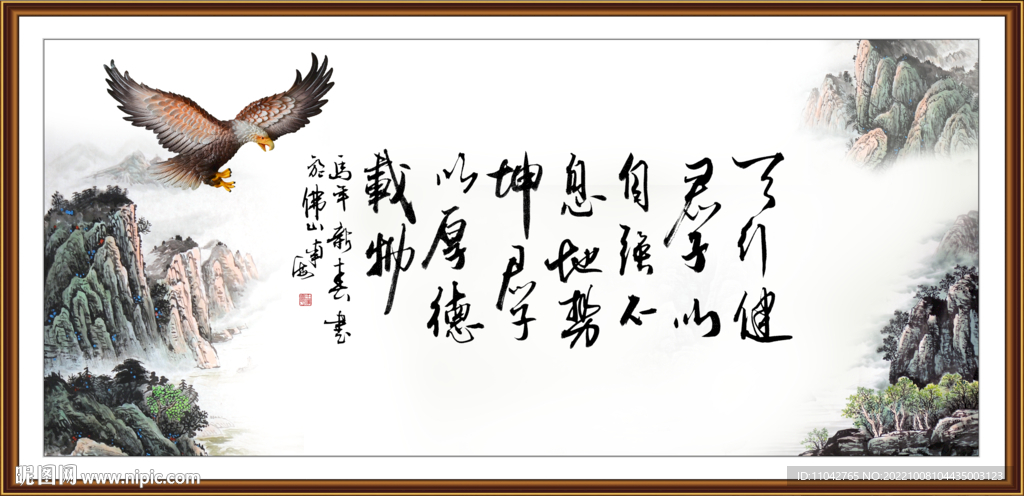 天行健
君子以
自强不
息地势
坤君子
以厚德
载物
马年新春书
于佛山南海
昵图网 www.nipic.com
ID:11042765 NO:20221008104435003123